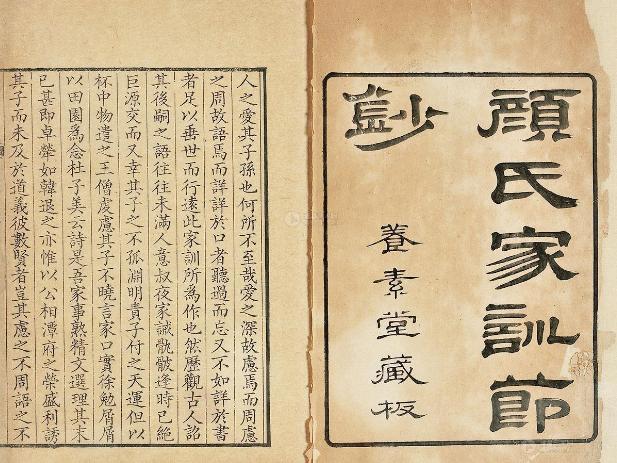 顔氏家訓節
鈔
養素堂藏板
人之愛其子孫也何所不至哉愛之深故慮焉而周慮
之周故語焉而詳詳於口者聽過而忘又不如詳於書
者足以垂世而行遠此家訓所為作也然歷觀古人詒
其後嗣之語往往未滿人意叔夜家誡骫骳逢時已絕
巨源交而又幸其子之不孤淵明責子付之天運但以
杯中物遣之王僧虔慮其子不曉言家口實徐勉屑屑
以田園為念杜子美云詩是吾家事熟精文選理其末
已甚即卓犖如韓退之亦惟以公相潭府之榮盛利誘
其子而未及於道義彼數賢者豈其慮之不周語之不